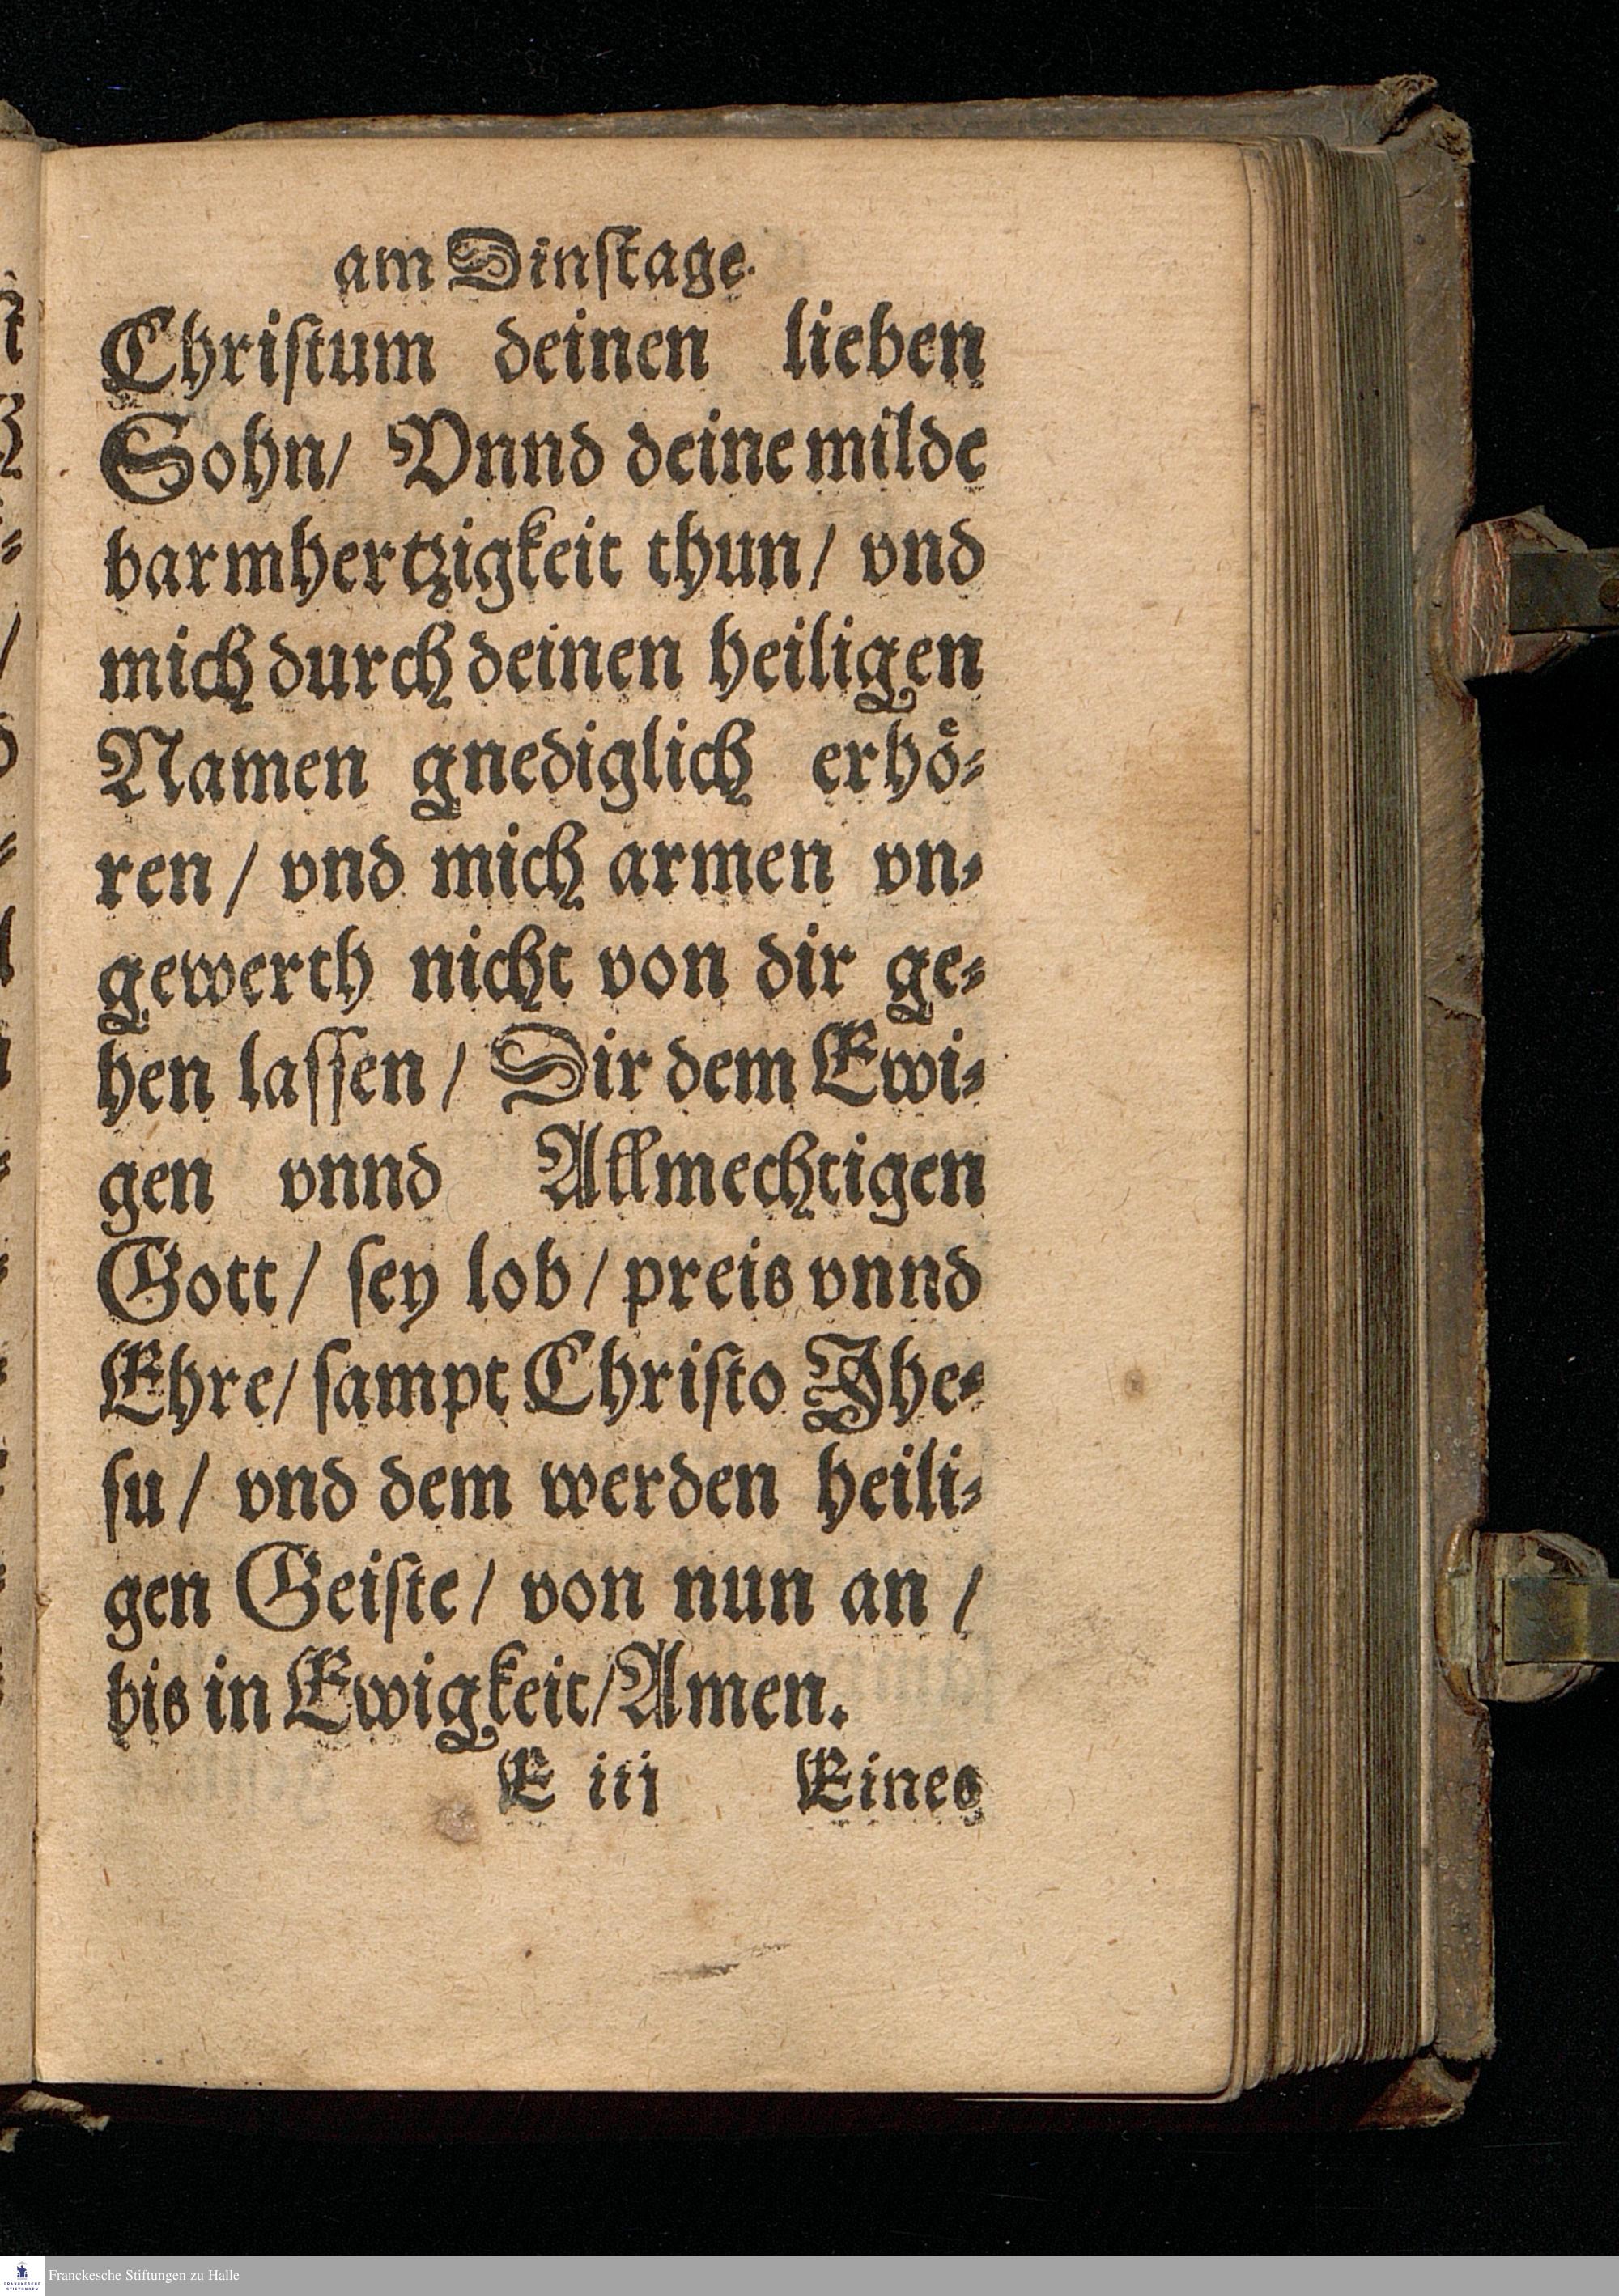 am Dinſtage.
Chriſtum deinen lieben
Sohn/ Vnnd deine milde
barmhertzigkeit thun/ vnd
mich durch deinen heiligen
Namen gnediglich erhoͤ-
ren / vnd mich armen vn-
gewerth nicht von dir ge-
hen laſſen / Dir dem Ewi-
gen vnnd Allmechtigen
Gott / ſey lob / preis vnnd
Ehre / ſampt Chriſto Jhe-
ſu / vnd dem werden heili-
gen Geiſte / von nun an /
bis in Ewigkeit/Amen.
E iij Eines
Franckesche Stiftungen zu Halle